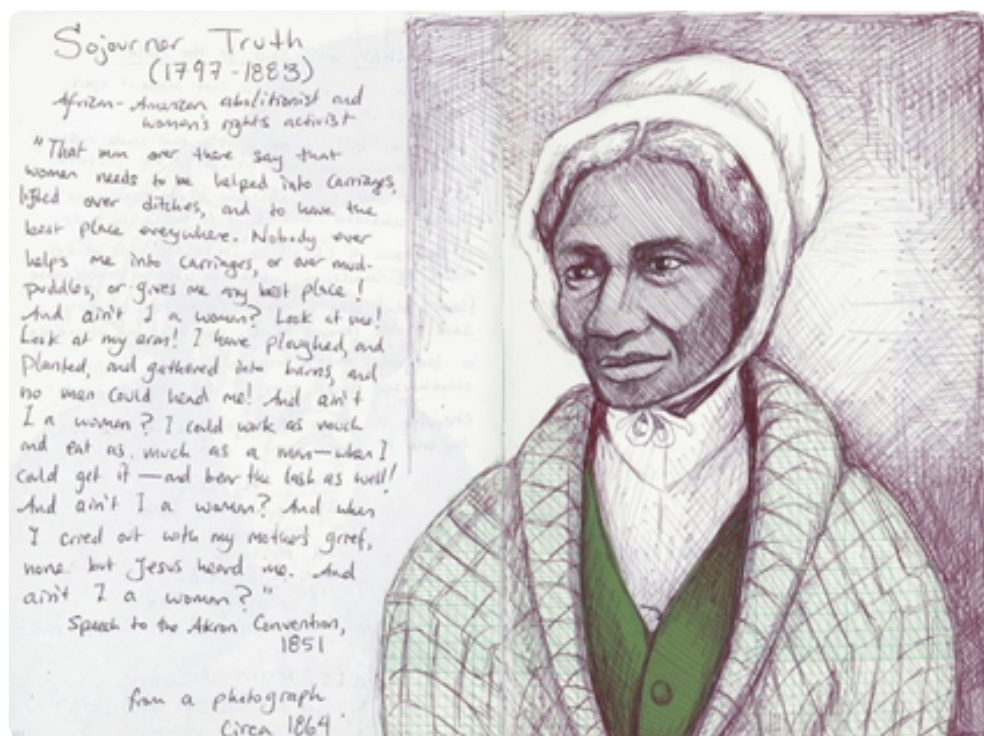 Sojourner Truth
(1797-1883)
African-American abolitionist and
women's rights activist
"That man over there say that
women needs to be helped into carriages,
lifted over ditches, and to have the
best place everywhere. Nobody ever
helps me into carriages, or over mud-
puddles, or gives me any best place!
And ain't I a woman? Look at me!
Look at my arm! I have ploughed, and
planted, and gathered into barns, and
no man could head me! And ain't
I a woman? I could work as much
and eat as much as a man—when I
could get it—and bear the lash as well!
And ain't I a woman? And when
I cried out with my mother's grief,
none but Jesus heard me. And
ain't I a woman?"
Speech to the Akron Convention,
1851
from a photograph
circa 1864